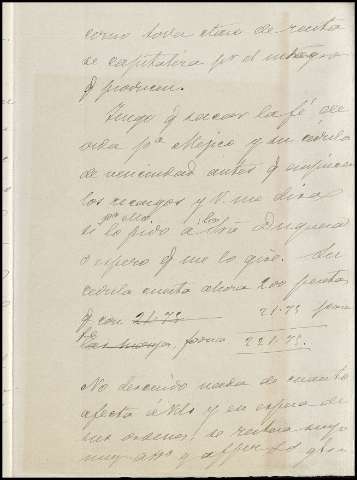 como toda clase de renta
se capitaliza pr el
q producen.
Tengo q sacar la fé de
vida pa Méjico y su cédula
de vecindad antes q empiecen
los recargos y V. me dira
pa ello
si lo pido á la Sra Duquesa
o espero q me lo gire. Su
cedula cuesta ahora 200 pesetas
q con 21.75 21.75 para
forma 221.75.
No descuido nada de cuanto
afecta á Vds y en espera de
sus órdenes se reitera suyo
muy affo y